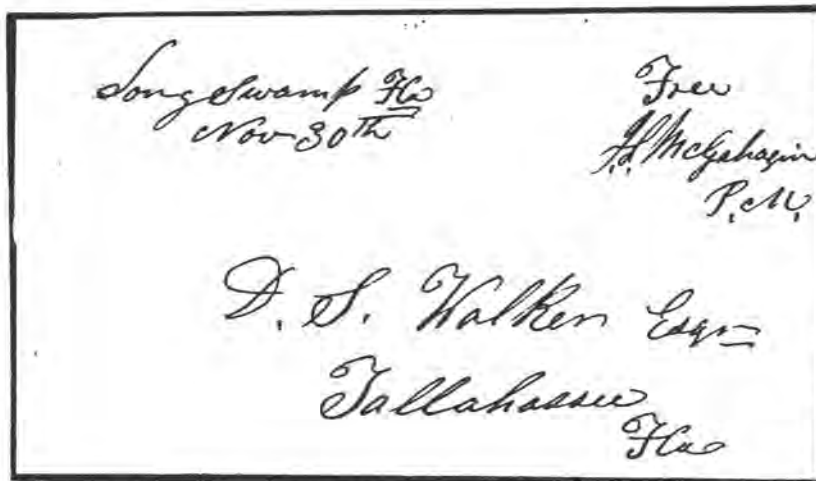 Long Swamp Fla
Nov 30th
Free
McGahagin
P.M.
D. S. Walker Esqr
Tallahassee
Fla